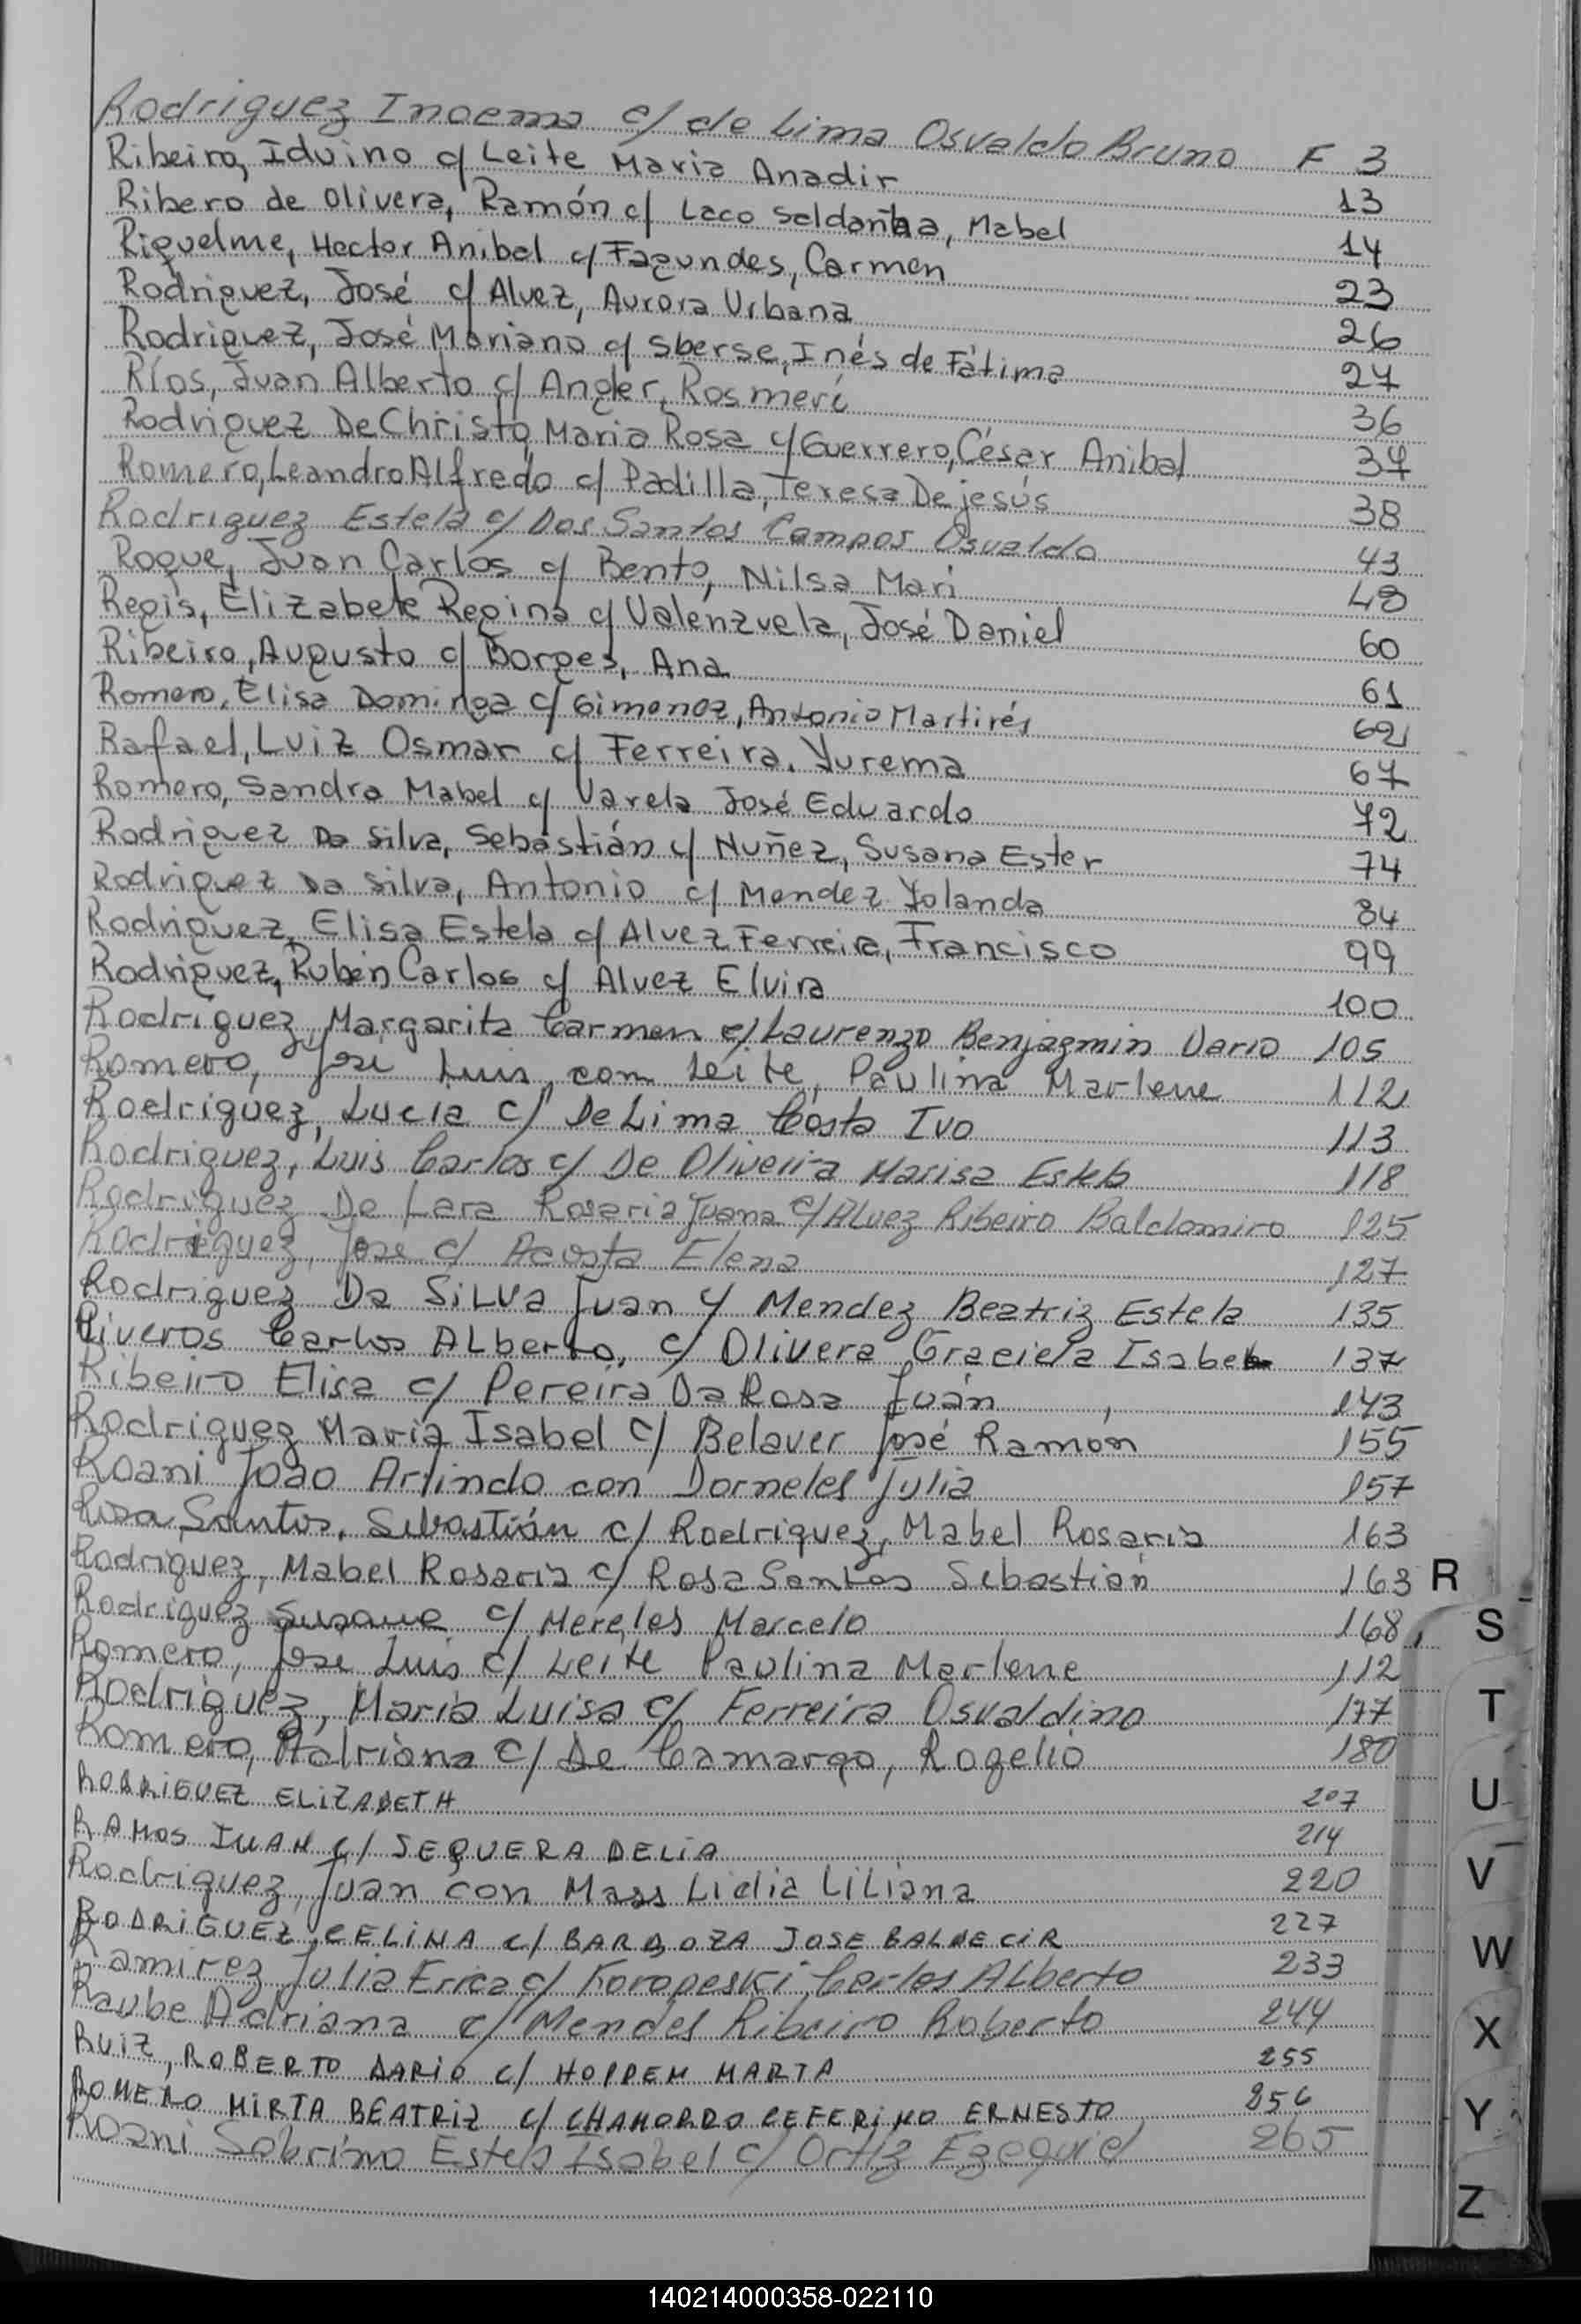 Rodriguez Inoema c/ de Lima Osvaldo Bruno F 3
Ribeiro, Iduino c/ Leite Maria Anadir 13
Ribero de Olivera, Ramón c/ Laco Saldanha, Mabel 14
Riquelme, Hector Anibal c/ Fagundes, Carmen 23
Rodriguez, José c/ Alvez, Aurora Urbana 26
Rodriguez, José Mariano c/ Sberse, Inés de Fátima 27
Ríos, Juan Alberto c/ Angler, Rosmeri 36
Rodriguez De Christo, Maria Rosa c/ Guerrero, César Anibal 37
Romero, Leandro Alfredo c/ Padilla, Teresa De jesús 38
Rodriguez Estela c/ Dos Santos Campos Osvaldo 43
Roque, Juan Carlos c/ Bento, Nilsa Mari 48
Regis, Elizabete Regina c/ Valenzuela, José Daniel 60
Ribeiro, Augusto c/ Borges, Ana 61
Romero, Elisa Dominga c/ Gimenez, Antonio Martirés 62
Rafael, Luiz Osmar c/ Ferreira, Yurema 67
Romero, Sandra Mabel c/ Varela José Eduardo 72
Rodriguez Da Silva, Sebastián c/ Nuñez, Susana Ester 74
Rodriguez Da Silva, Antonio c/ Mendez Yolanda 84
Rodriguez, Elisa Estela c/ Alvez Ferreira, Francisco 99
Rodriguez, Rubén Carlos c/ Alvez Elvira 100
Rodriguez, Margarita Carmen c/ Laurenzo Benjazmin Dario 105
Romero, José Luis, com Leite, Paulina Marlene 112
Rodriguez, Lucia c/ De Lima Costa Ivo 113
Rodriguez, Luis Carlos c/ De Oliveira Marisa Estela 118
Rodriguez De Lara Rosaria Juana c/ Alvez Ribeiro Baldomiro 125
Rodriguez, Jose c/ Acosta Elena 127
Rodriguez Da Silva Juan y Mendez Beatriz Estela 135
Riveros Carlos Alberto, c/ Olivera Graciela Isabel 137
Ribeiro Elisa c/ Pereira Da Rosa Juán 143
Rodriguez María Isabel c/ Belaver José Ramon 155
Roani João Arlindo con Dorneles Julia 157
Rosa Santos, Sebastián c/ Rodriguez, Mabel Rosaria 163
Rodriguez, Mabel Rosaria c/ Rosa Santos Sebastián 163
Rodriguez Susana c/ Mereles Marcelo 168
Romero, José Luis c/ Leite Paulina Marlene 112
Rodriguez, Maria Luisa c/ Ferreira Osvaldino 177
Romero, Adriana c/ De Camargo, Rogelio 180
RODRIGUEZ ELIZABETH 207
RAMOS JUAN c/ SEQUERA DELIA 214
Rodriguez, Juan con Mass Lidia Liliana 220
RODRIGUEZ, CELINA c/ BARBOZA JOSE BALDECIR 227
Ramirez Julia Erica c/ Koropeski Carlos Alberto 233
Raube Adriana c/ Mendes Ribeiro Roberto 244
RUIZ, ROBERTO DARIO c/ HOPPEN MARTA 255
ROMERO MIRTA BEATRIZ c/ CHAMORRO CEFERINO ERNESTO 256
Roani Sobrino Estela Isabel c/ Ortiz Ezequiel 265
R
S
T
U
V
W
X
Y
Z
140214000358-022110